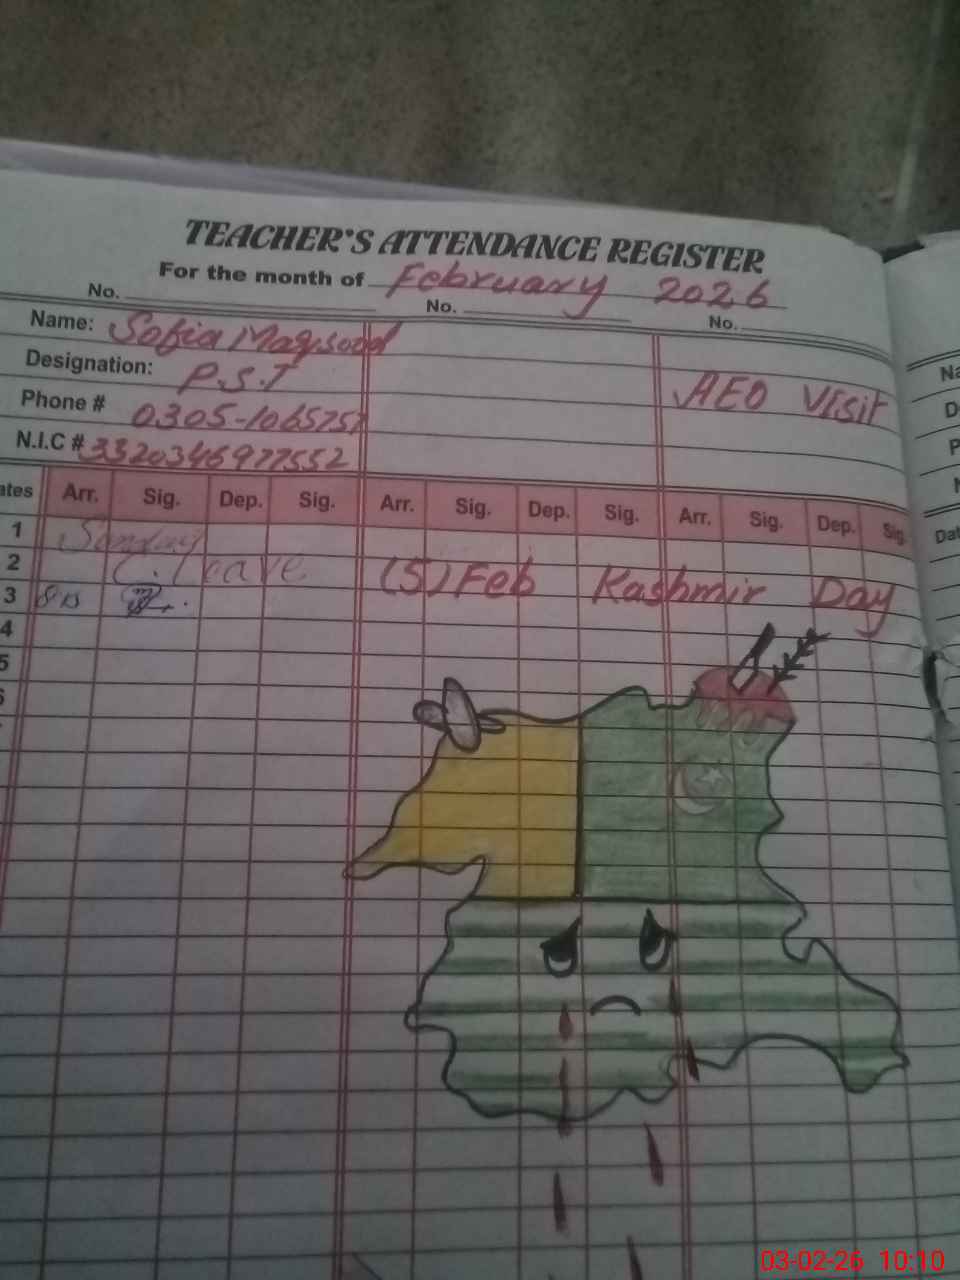 TEACHER'S ATTENDANCE REGISTER
For the month of February 2026
No. No. No.
Name: Sofia Maqsood
Designation: P.S.T
AEO Visit
Phone # 0305-1065757
N.I.C # 3320346977552
ates Arr. Sig. Dep. Sig. Arr. Sig. Dep. Sig. Arr. Sig. Dep. Sig.
1 Sunday
2 C. leave
(5) Feb Kashmir Day
3
4
5
6
Na
D
P
N
Dat
03-02-26 10:10